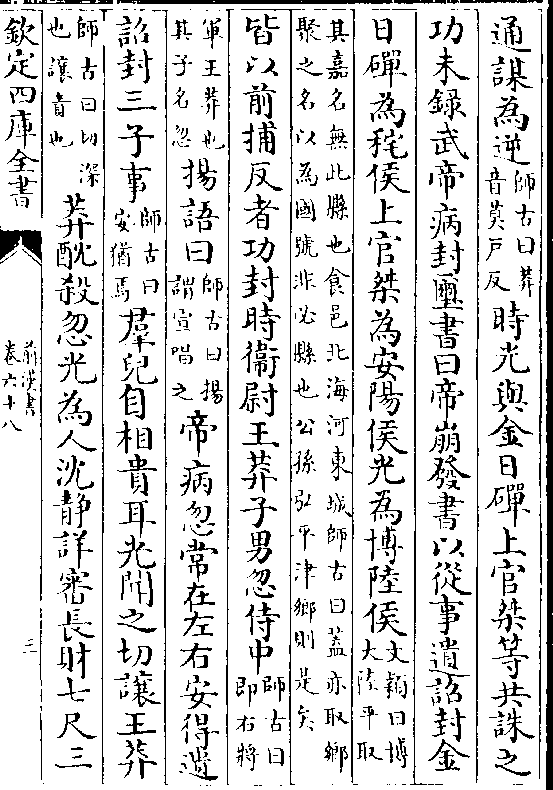 通謀為逆師古曰莽音莫戸反時光與金日磾上官桀等共誅之
功未録武帝病封璽書曰帝崩發書以從事遺詔封金
日磾為秺侯上官桀為安陽侯光為博陸侯文穎曰博大陸平取
其嘉名無此縣也食邑北海河東城師古曰蓋亦取鄉
聚之名以為國號非必縣也公孫弘平津鄉則是矣
皆以前捕反者功封時衞尉王莽子男忽侍中師古曰即右將
軍王莽也其子名忽揚語曰師古曰揚謂宣唱之帝病忽常在左右安得遺
詔封三子事師古曰安猶焉羣兒自相貴耳光聞之切讓王莽
師古曰切深也讓責也莽酖殺忽光為人沈静詳審長財七尺三
欽定四庫全書
前漢書
卷六十八
三